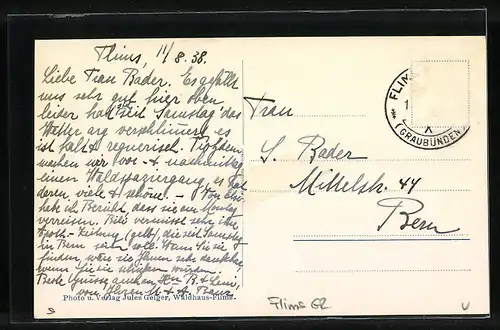 Flims, 11/8.38.
Liebe Frau Bader. Es gefällt
uns sehr gut hier oben
leider hat seit Samstag das
Wetter arg verschlimmert, es
ist kalt & regnerisch. Trotzdem
machen wir vor- & nachmittag
einen Waldspaziergang, es hat
deren viele & schöne. - Von
hat ich Bericht, dass sie am Montag
verreisen. Bitte vermisst sehr ihre
Apoth-Zeitung (gelb), die seit Samstag
in Bern sein soll. Wenn Sie sie
finden, wäre sie Ihnen sehr dankbar
wenn Sie sie schicken würden.
Beste Grüsse auch an Hrn B. & Leni,
von Ihren
Photo u. Verlag Jules Geiger, Waldhaus-Flims
Frau
S. Bader
Mittelstr. 44
Bern
FLIMS
(GRAUBÜNDEN)
Flims GR